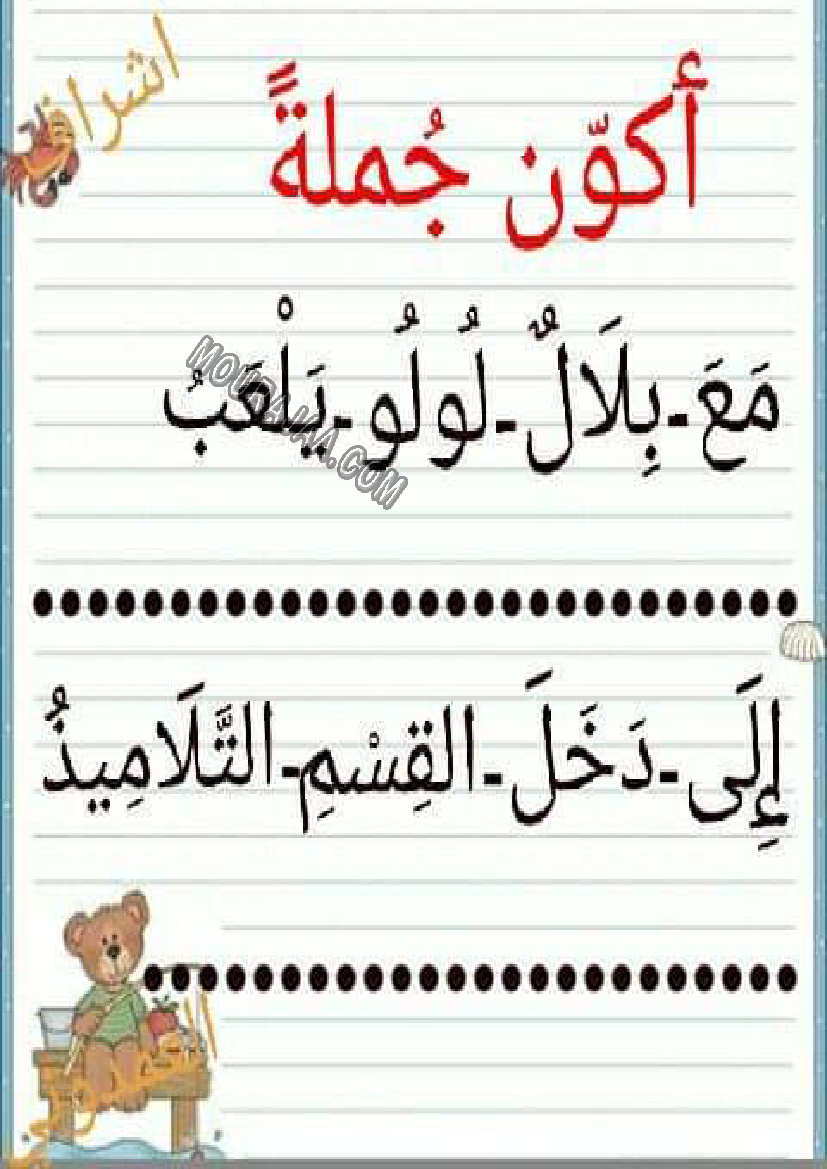 اشراف
أكوّن جُملةً
مَعَ-بِلَالٌ-لُولُو-يَلْعَبُ
MOURAJAA.COM
إِلَى-دَخَلَ-القِسْمِ-التَّلَامِيذُ